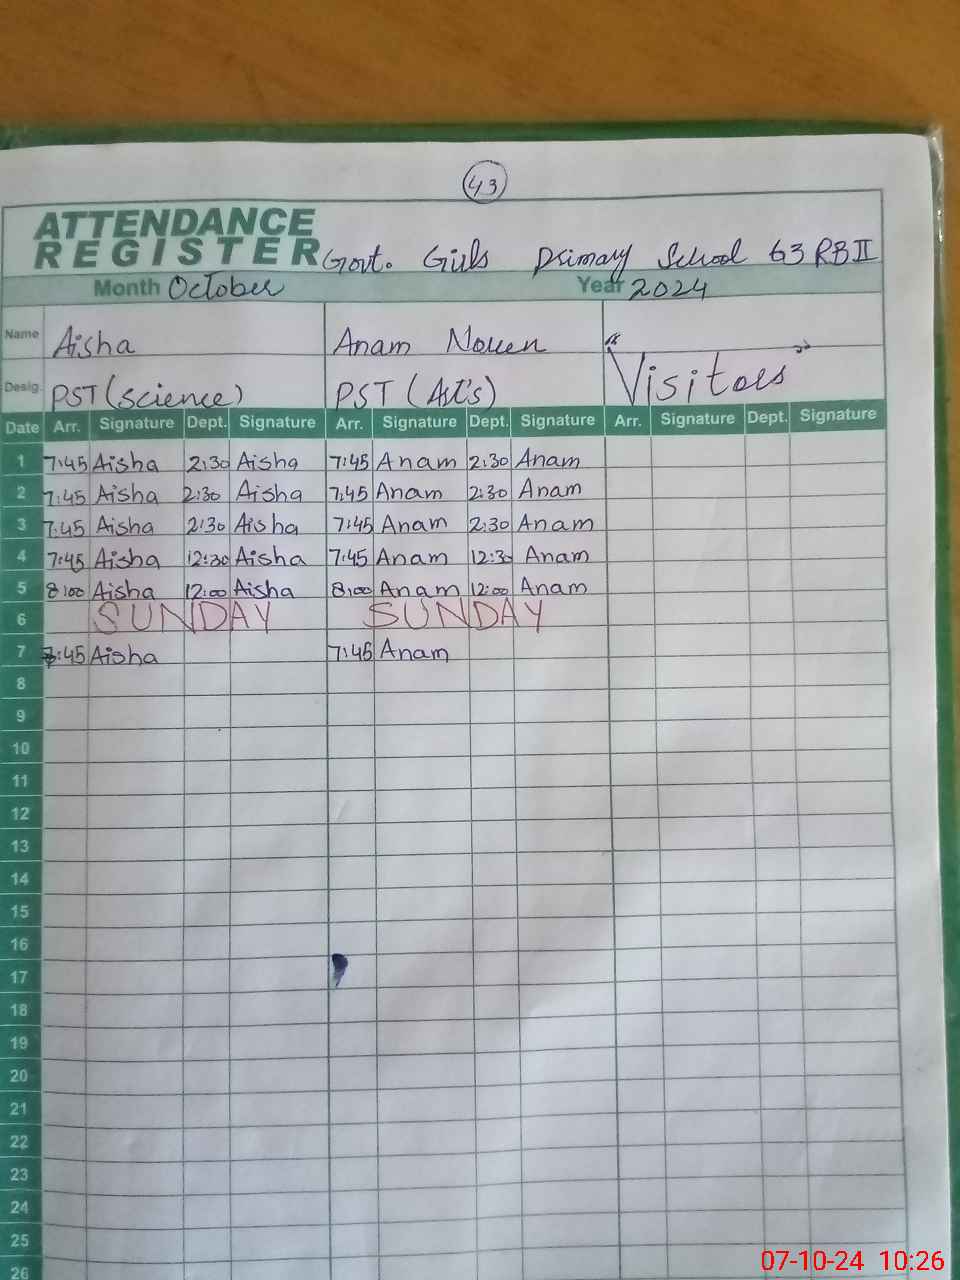 43
ATTENDANCE
REGISTER Govt. Girls Primary School 63 RB II
Month October Year 2024
Name Aisha Anam Noreen
Desig. PST (science) PST (Art's) Visitors
Date Arr. Signature Dept. Signature Arr. Signature Dept. Signature Arr. Signature Dept. Signature
1 7:45 Aisha 2:30 Aisha 7:45 Anam 2:30 Anam
2 7:45 Aisha 2:30 Aisha 7:45 Anam 2:30 Anam
3 7:45 Aisha 2:30 Aisha 7:45 Anam 2:30 Anam
4 7:45 Aisha 12:30 Aisha 7:45 Anam 12:30 Anam
5 8:00 Aisha 12:00 Aisha 8:00 Anam 12:00 Anam
6 SUNDAY SUNDAY
7 7:45 Aisha 7:45 Anam
8
9
10
11
12
13
14
15
16
17
18
19
20
21
22
23
24
25
26
07-10-24 10:26